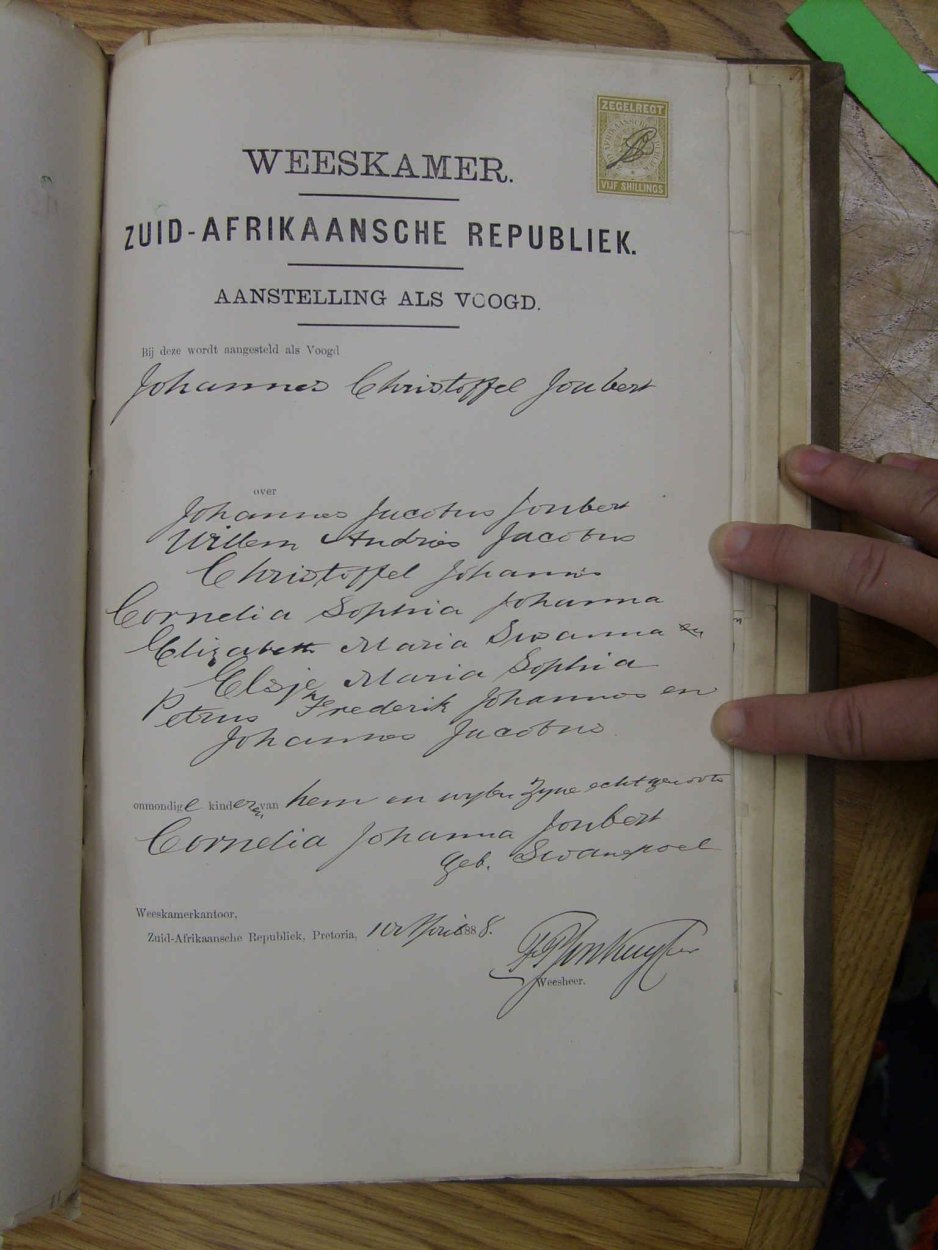 ZEGELREGT
VIJF SHILLINGS
WEESKAMER.
ZUID-AFRIKAANSCHE REPUBLIEK.
AANSTELLING ALS VOOGD.
Bij deze wordt aangesteld als Voogd
Johannes Christoffel Joubert
over
Johannes Jacobus Joubert
Willem Andries Jacobus
Christoffel Johannis
Cornelia Sophia Johanna
Elizabeth Maria Susanna
Elsje Maria Sophia
Petrus Frederik Johannes en
Johannes Jacobus
onmondige kinderen van hem en wylen Zyne echtgenoote
Cornelia Johanna Joubert
geb. Swanepoel
Weeskamerkantoor,
Zuid-Afrikaansche Republiek, Pretoria, April 1888.
Weesheer.